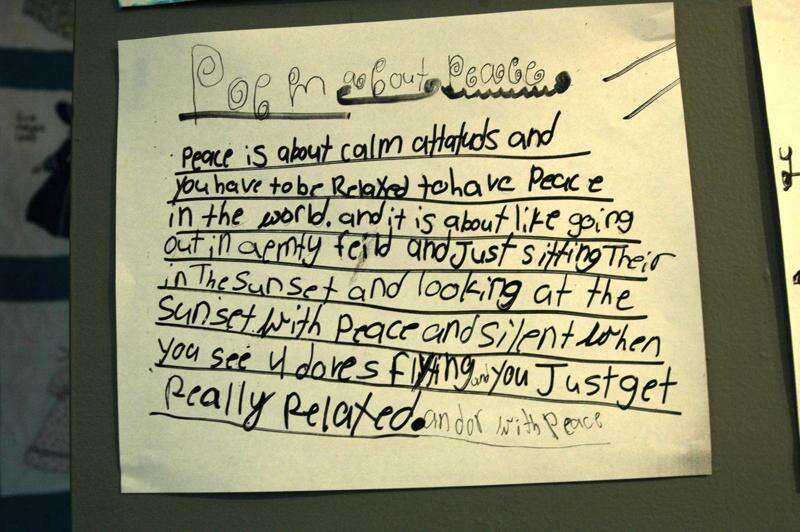 Poem about Peace
Peace is about calm attatuds and
you have to be Relaxed to have Peace
in the world. and it is about like going
out in aemty feild and Just sitting Their
in The sunset and looking at the
sunset. with Peace and silent when
you see 4 doves flying and you Just get
Really Relaxed. and or with peace